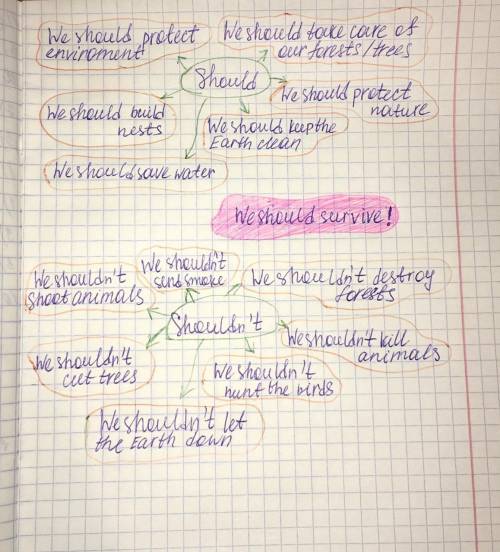 We should protect
enviroment
We should take care of
our forests/trees
Should
We should build
nests
We should protect
nature
We should keep the
Earth clean
We should save water
We should survive!
We shouldn't
shoot animals
We shouldn't
send smoke
We shouldn't destroy
forests
Shouldn't
We shouldn't kill
animals
We shouldn't
cut trees
We shouldn't
hunt the birds
We shouldn't let
the Earth down